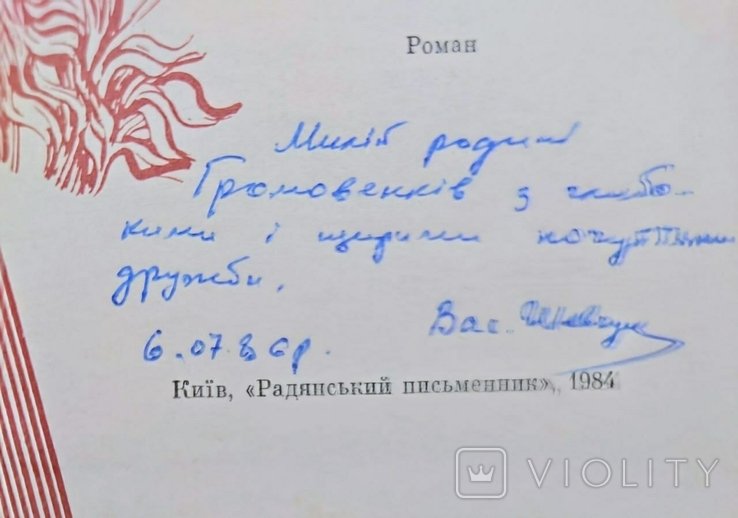 Роман
Милій родині
Громовенків з глибо-
кими і щирими почуттями
дружби.
Вас. Шевчук
6.07.86р.
Київ, «Радянський письменник», 1984
VIOLITY